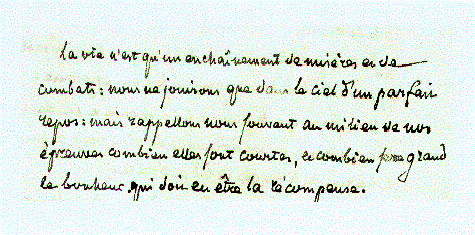 La vie n'est qu'un enchaînement de misères en de
combats : nous ne jouissons que dans le ciel d'un parfait
repos : mais rappellons nous souvent au milieu de nos
épreuves combien elles sont courtes, et combien sera grand
le bonheur qui doit en être la récompense.